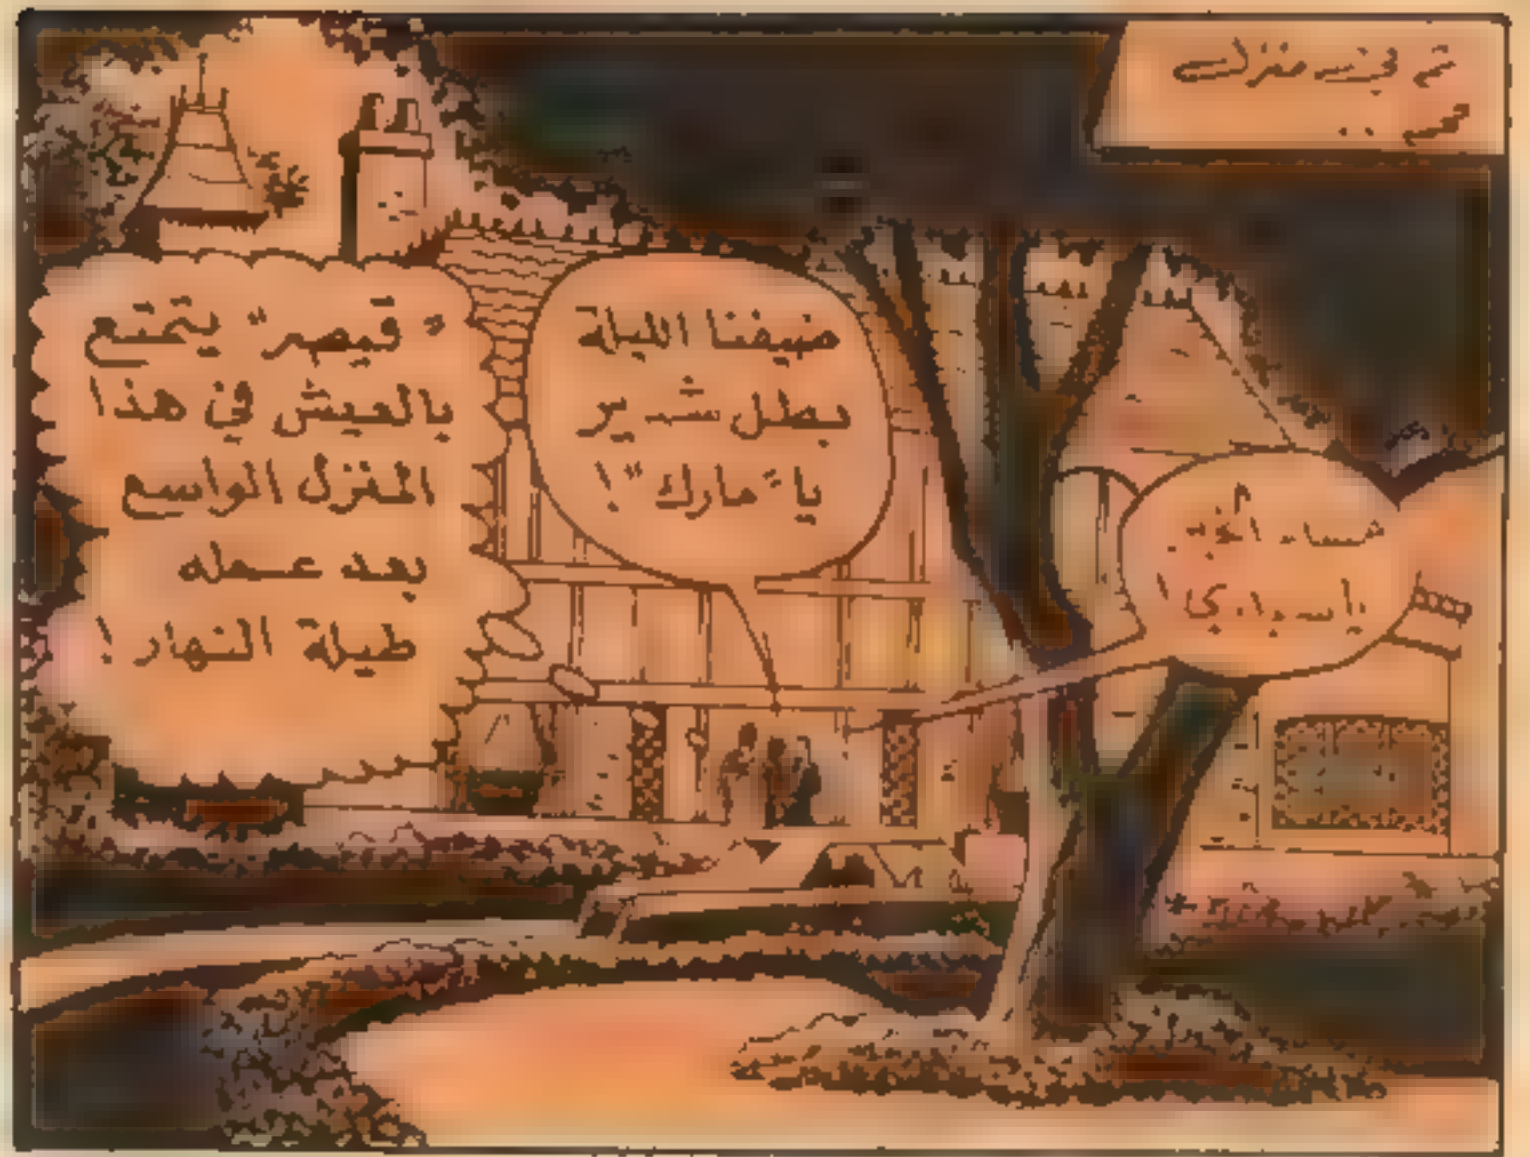 ثم في منزل
مساء الخير
ضيفنا الليلة
بطل شهير
يا "مارك"!
"قيصر" يتمتع
بالعيش في هذا
المنزل الواسع
بعد عمله
طيلة النهار!